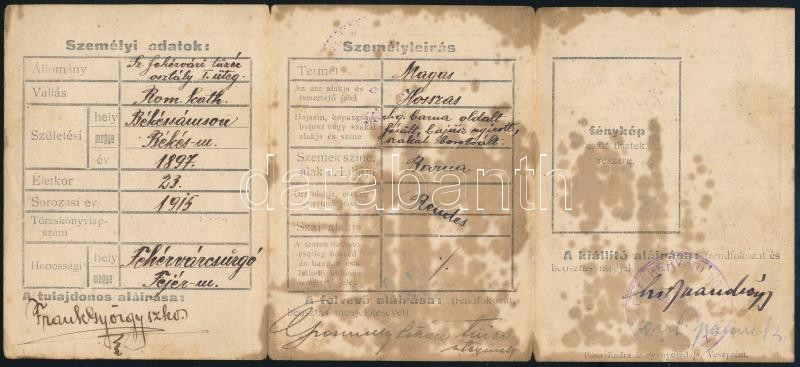 Személyi adatok:
Állomány
Sz. fehérvári tüzér
osztály I. üteg.
Vallás
Rom. kath.
Születési
hely
Békéssámson
megye
Békés-m.
év
1897.
Életkor
23.
Sorozási év
1915
Törzskönyvlap-
szám
Honossági
hely
Fehérvárcsurgó
megye
Fejér-m.
A tulajdonos aláirása:
Frank György
Személyleirás
Termet
Magas
Az arc alakja és
ismertető jelei
Hosszas
Hajszin,
bajusz vagy szakál
alakja és szine
barna oldalt
fésült, bajusz nyirott,
szakál borotvált.
Szemek szine,
Barna
Rendes
Száj alakja
A testen látható
esetleg beszéd
ismertető jelek
A felvevő aláirása: (rendfokozat,
beosztás megjelölésével)
fénykép
tisztek
részére.
A kiállitó aláirása: (rendfokozat és
beosztás
Pósa Endre könyvnyomdája, Veszprém.
darabanth